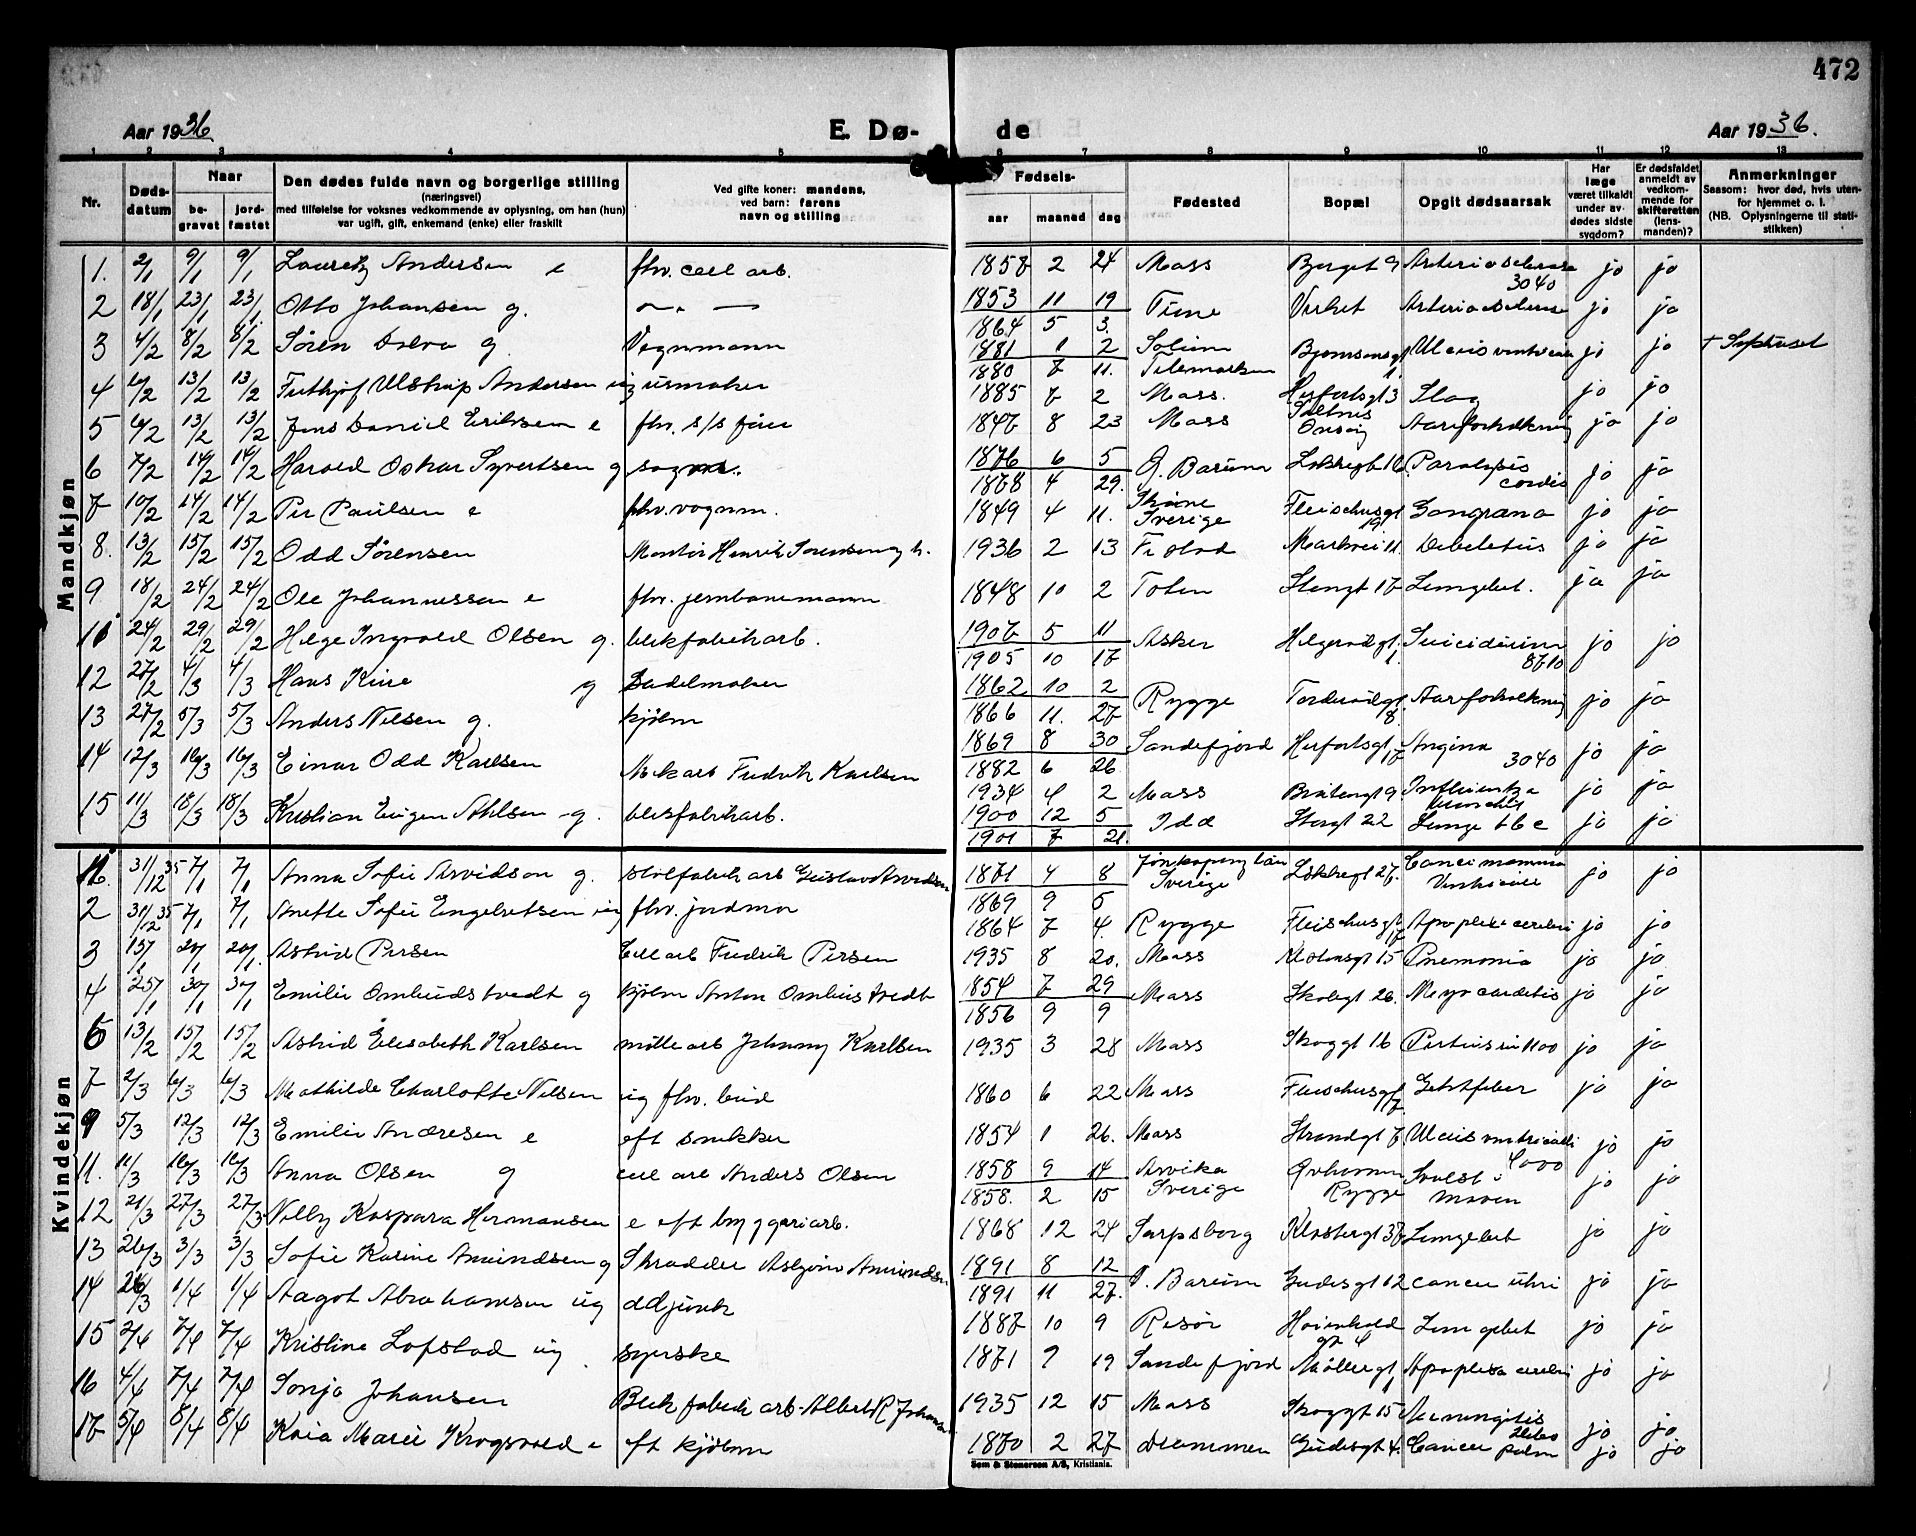 472
Aar 1936
E. Dø-
de
Aar 1936.
1 2 3 4 5 6 7 8 9 10 11 12 13
Nr.
Døds-
datum
Naar
be-
gravet
jord-
fæstet
Den dødes fulde navn og borgerlige stilling
(næringsvei)
med tilføielse for voksnes vedkommende av oplysning, om han (hun)
var ugift, gift, enkemand (enke) eller fraskilt
Ved gifte koner: mandens,
ved barn: farens
navn og stilling
Fødsels-
aar maaned dag
Fødested
Bopæl
Opgit dødsaarsak
Har
læge
været tilkaldt
under av-
dødes sidste
sygdom?
Er dødsfaldet
anmeldt av
vedkom-
mende for
skifteretten
(lens-
manden)?
Anmerkninger
Saasom: hvor død, hvis uten-
for hjemmet o. l.
(NB. Oplysningerne til stati-
stikken)
Mandkjøn
1. 2/1 9/1 9/1 Lauretz Andersen e fhv. cell arb. 1858 2 24 Moss Berget 9 Arteriosclerose 3040 jo jo
2 18/1 23/1 23/1 Otto Johansen g. — " — 1853 11 19 Verket Arteriosclerose jo jo
1864 5 3.
3 4/2 8/2 8/2 Søren g. Vognmann 1881 1 2 jo jo + Sykehuset
1880 7 11. Telemarken
4 6/2 13/2 13/2 Ulstrup Andersen ug urmaker 1885 7 2 Moss. 3 Slag jo jo
5 6/2 13/2 13/2 Jens Daniel Eriksen e fhv. s/s 1847 8 23 Moss Onsøy Aareforkalkning jo jo
6 7/2 14/2 14/2 Harald Oskar Syvertsen g 1876 6 5 Ø. Bærum Paralysis cordis jo jo
1878 4 29.
7 10/2 14/2 14/2 Per Paulsen e fhv. vognm. 1849 4 11. Skåne Sverige Fleischersgt 19 Gangræna jo jo
8. 13/2 15/2 15/2 Odd Sørensen Montør Henrik Sørensen og h. 1936 2 13 Markvei 11. jo jo
9 18/2 24/2 24/2 Ole Johannessen e fhv. jernbanemann 1848 10 2 Toten 17 Lungebet. ja ja
11 24/2 29/2 29/2 Helge Ingvald Olsen g. blikfabrikarb. 1907 5 11 Asker 1. Suicidium 8710 jo jo
1905 10 17
12 27/2 4/3 4/3 Hans g Sadelmaker 1862 10 2 Rygge 8. Aareforkalkning jo ja
1866 11. 27
13 27/2 5/3 5/3 Anders Nilsen g. kjøbm 1869 8 30 Sandefjord 17 Angina 3040 jo jo
1882 6 26
14 12/3 16/3 16/3 Einar Odd Karlsen Mek arb Fredrik Karlsen 1934 4 2 Moss 9. Influenza jo ja
15 11/3 18/3 18/3 Kristian Eugen Ahlsen g. blikfabrikarb. 1900 12 5 Idd Storgt 22 Lunge tbc jo jo
1901 7 21.
Kvindekjøn
1. 31/12 35 7/1 7/1 Anna Sofie Arvidson g. arb Gustav Arvidson 1871 4 8 Jönköping län Sverige 27. Cancer mamma jo jo
1869 9 5
2 31/12 35 7/1 7/1 Anette Sofie Engebretsen ug fhv. jordmor 1864 7 4. Rygge Fleischersgt 17 Apoplexi cerebri jo jo
3 15/1 20/1 20/1. Astrid Persen Cell arb Fredrik Persen 1935 8 20. Moss 15 Pnemonia jo jo
4 25/1 30/1 30/1 Emilie Ombudstvedt g kjøbm Anton Ombudstvedt 1854 7 29 Moss Skolegt 26. Myocarditis jo jo
1856 9 9
6 13/2 15/2 15/2 Astrid Elisabeth Karlsen mølle arb Johnny Karlsen 1935 3 28 Moss Skoggt 16 1100 jo jo
7 2/3 6/3 6/3 Mathilde Charlotte Nilsen ug fhv. 1860 6 22 Moss Fleischersgt 17 jo jo
9 5/3 12/3 12/3 Emilie Andresen e eft snekker 1854 1 26. Moss Strandgt 7 Ulcus ventriculi 4000 jo jo
11. 11/3 16/3 16/3 Anna Olsen g cell arb Anders Olsen 1858 9 14 Arvika Sverige Rygge Svulst i maven jo jo
1858. 2 15
12 21/3 27/3 27/3 Kaspara Hermansen e eft bryggeriarb. 1868 12 24 Sarpsborg Klostergt 37 Lungebet jo jo
13 26/3 3/3 3/3 Sofie Karine Amundsen g Skrædder Asbjørn Amundsen 1891 8 12 Ø. Bærum Gudesgt 12 cancer uteri jo jo
1891 11 27.
14 26/3 1/4 1/4 Aagot Abrahamsen ug 1887 10 9 Risør 4 Lungebet jo jo
15 2/4 7/4 7/4 Kristine Lofstad ug syerske 1871 9 19 Sandefjord Møllergt 1 Apoplexia cerebri jo jo
16 4/4 7/4 7/4 Sonja Johansen Blikfabrik arb. Albert R Johansen 1935 12 15 Moss Skoggt 15 Meningitis jo jo
17 5/4 8/4 8/4 Kaia Marie Krogsvold e eft kjøbm 1870 2 27 Drammen Gudesgt 4. Cancer jo jo
Sem & Stenersen A/S, Kristiania.